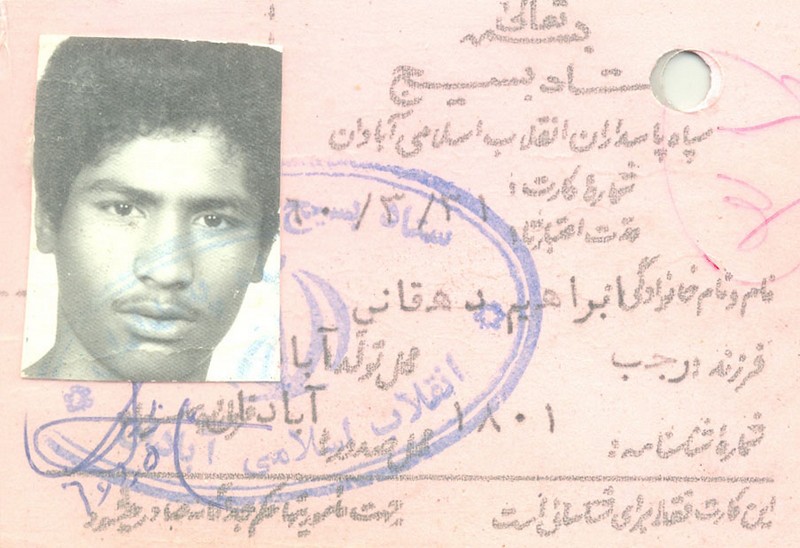 بسمه تعالی
ستاد بسیج
سپاه پاسداران انقلاب اسلامی آبادان
شمارهٔ کارت:
مدت اعتبار تا: ۶۰/۳/۳۱
نام و نام خانوادگی ابراهیم دهقانی
فرزند رجب محل تولد آبا
شماره شناسنامه: ۱۸۰۱ محل صدور آبادان
این کارت فقط برای شناسائی است
ستاد بسیج
انقلاب اسلامی آبادان